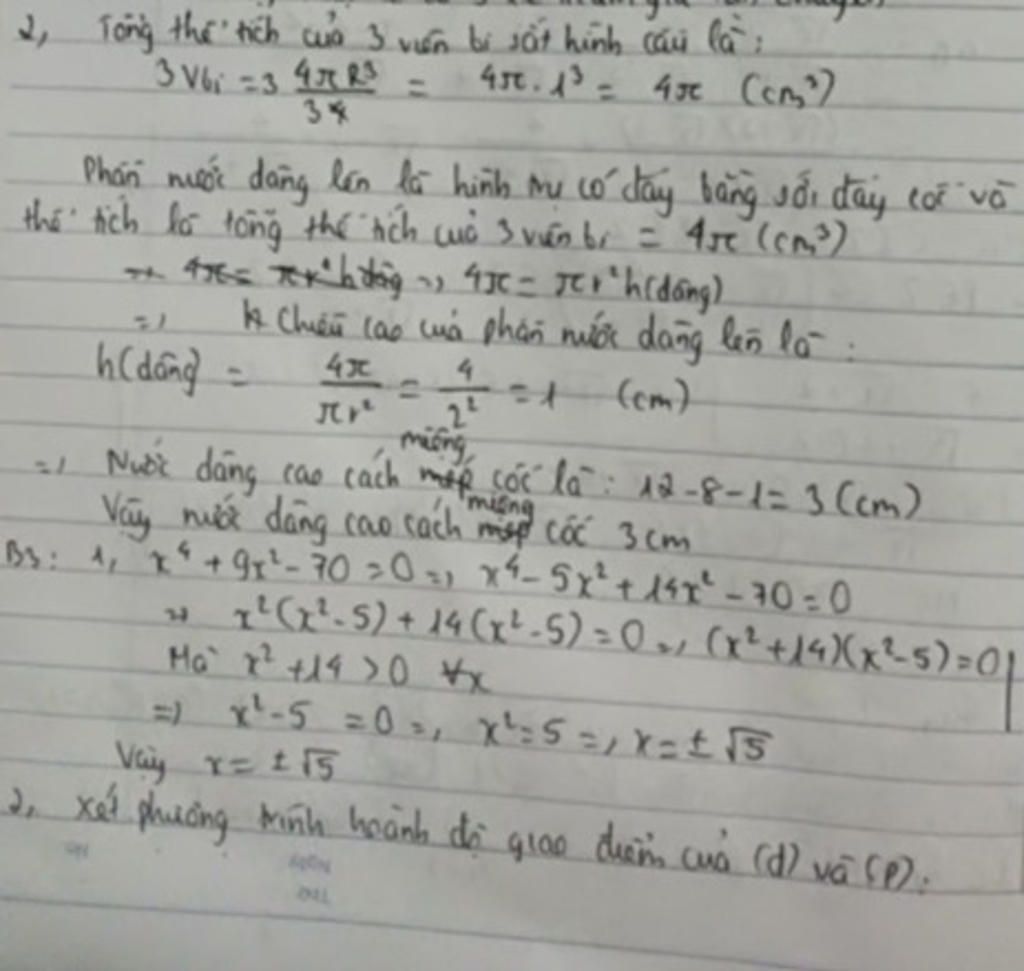 2, Tổng thể tích của 3 viên bi sắt hình cầu là:
3 Vbi = 3 4πR³/3 = 4π.1³ = 4π (cm³)
Phần nước dâng lên là hình trụ có đáy bằng với đáy cốc và
thể tích là tổng thể tích của 3 viên bi = 4π (cm³)
=> 4π = πr²h(dâng)
=> Chiều cao của phần nước dâng lên là:
h(dâng) = 4π/πr² = 4/2² = 1 (cm)
=> Nước dâng cao cách miệng cốc là: 12-8-1=3 (cm)
Vậy nước dâng cao cách miệng cốc 3cm
B3: 1, x⁴+9x²-70=0 => x⁴-5x²+14x²-70=0
=> x²(x²-5)+14(x²-5)=0 => (x²+14)(x²-5)=0
Mà x²+14>0 ∀x
=> x²-5=0 => x²=5 => x=±√5
Vậy x=±√5
2, Xét phương trình hoành độ giao điểm của (d) và (P):